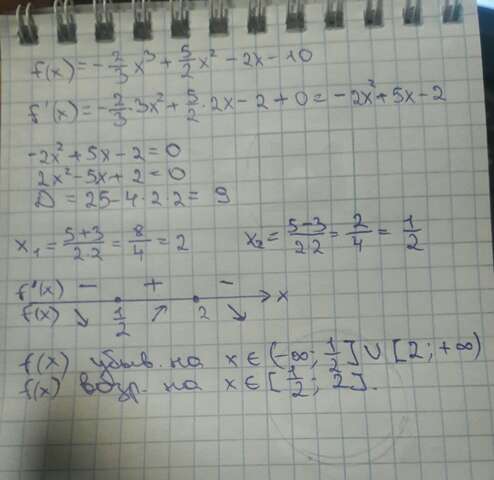 f(x) = -2/3 x³ + 5/2 x² - 2x - 10
f'(x) = -2/3 · 3x² + 5/2 · 2x - 2 + 0 = -2x² + 5x - 2
-2x² + 5x - 2 = 0
2x² - 5x + 2 = 0
D = 25 - 4 · 2 · 2 = 9
x₁ = 5+3/2·2 = 8/4 = 2 x₂ = 5-3/2·2 = 2/4 = 1/2
f'(x) - + - x
f(x) ↘ 1/2 ↗ 2 ↘
f(x) убыв. на x ∈ (-∞; 1/2] ∪ [2; +∞)
f(x) возр. на x ∈ [1/2; 2].